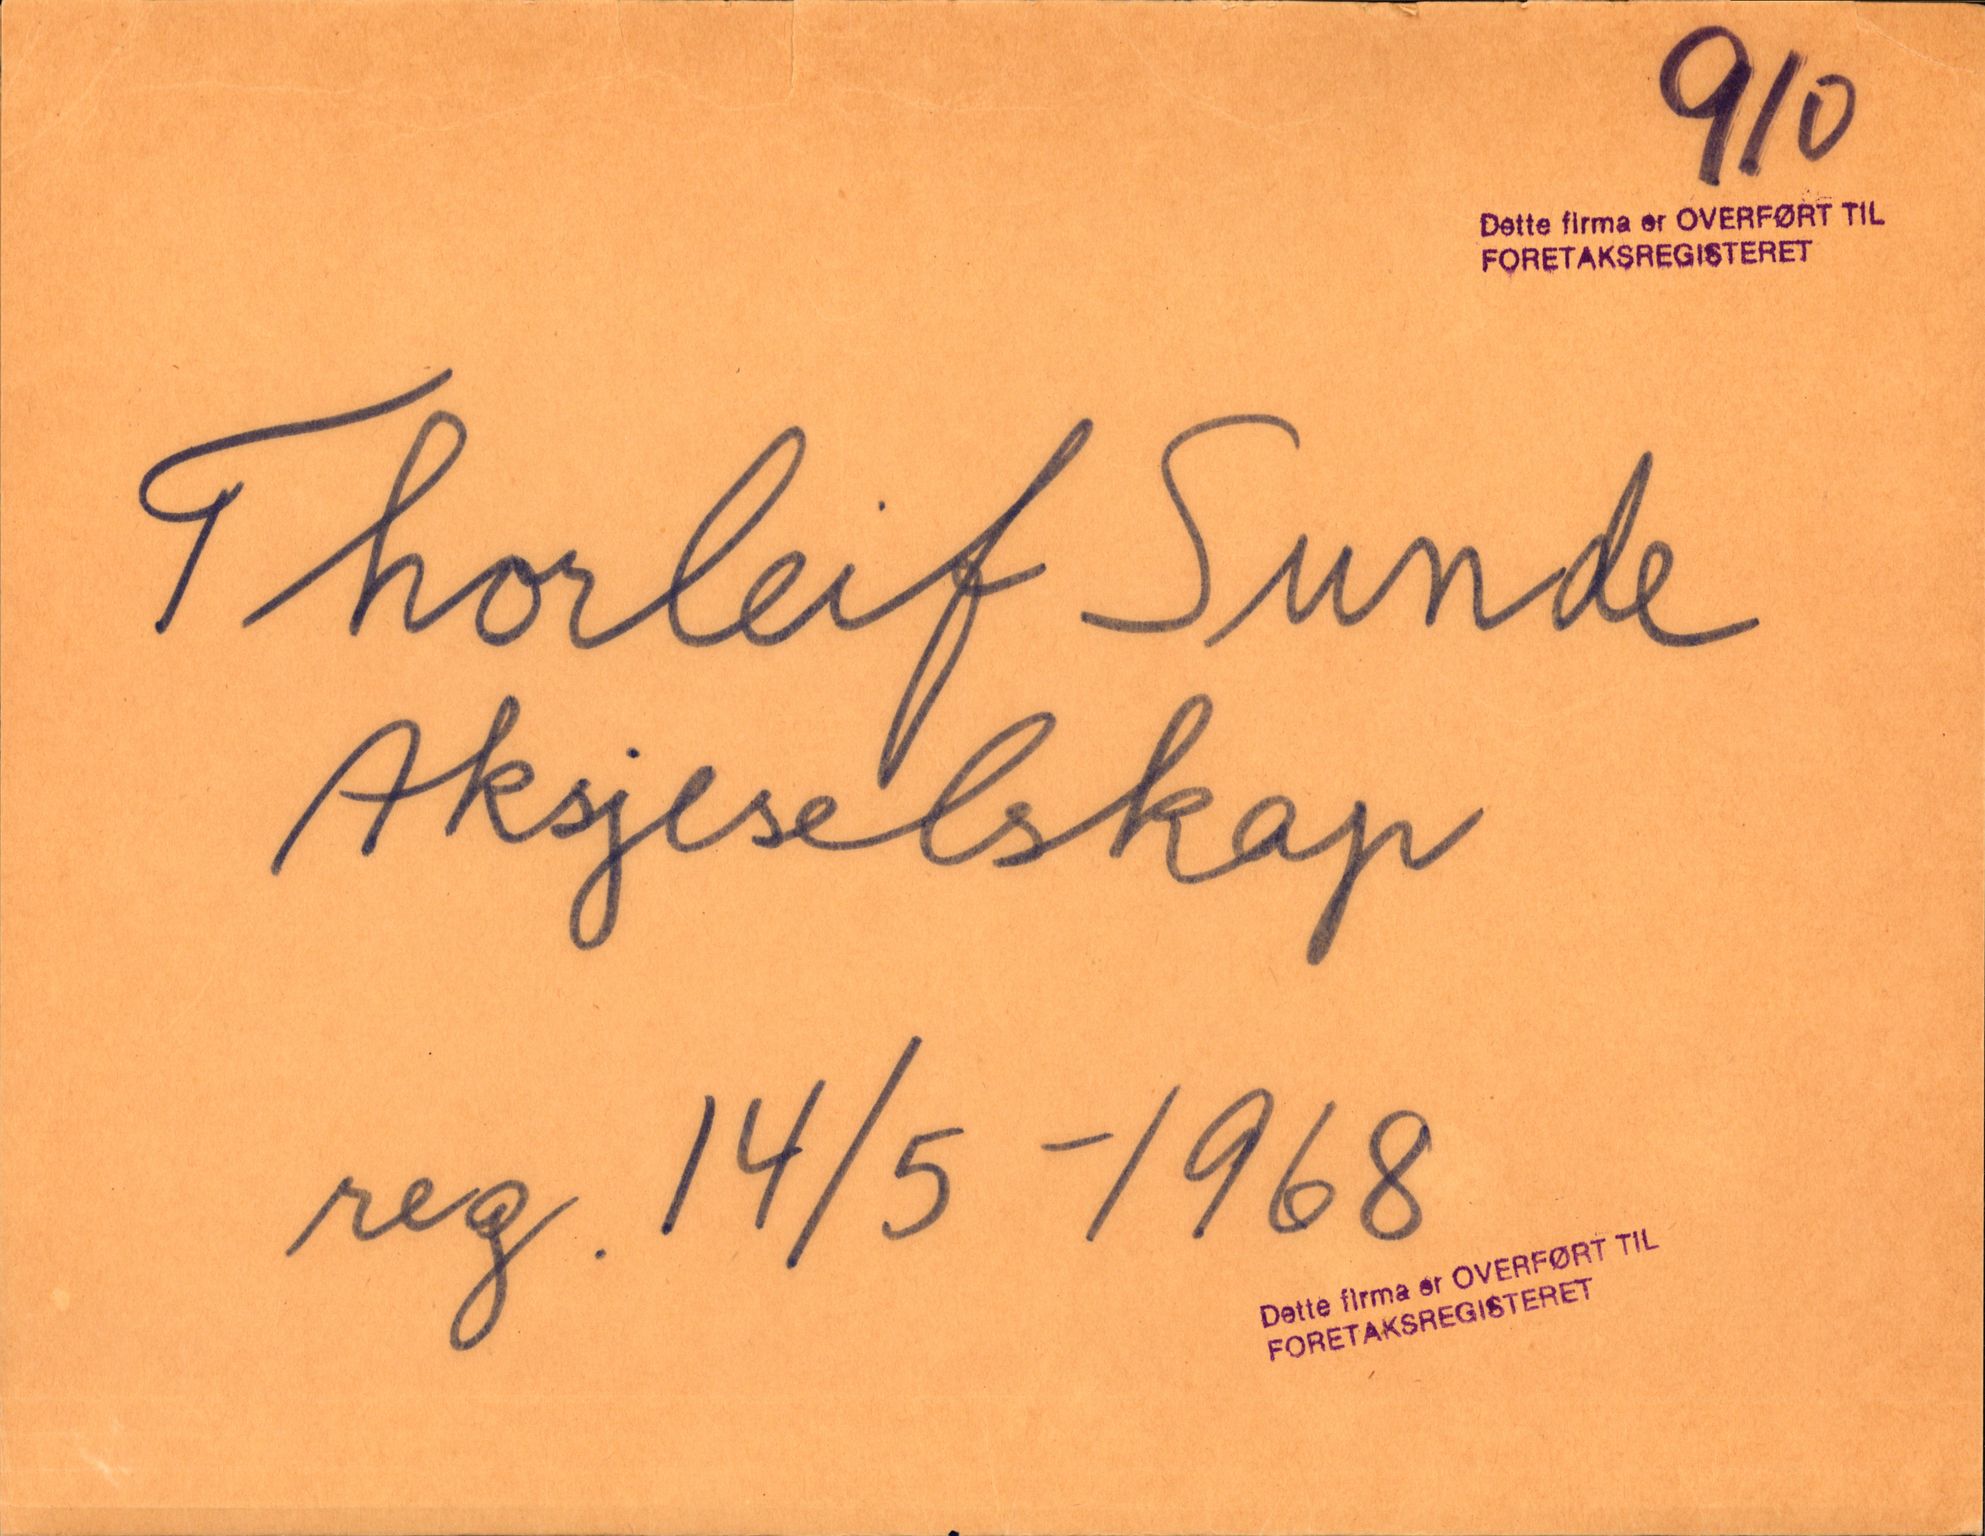 910
Dette firma er OVERFØRT TIL
FORETAKSREGISTERET
Thorleif Sunde
Aksjeselskap
reg. 14/5 -1968
Dette firma er OVERFØRT TIL
FORETAKSREGISTERET